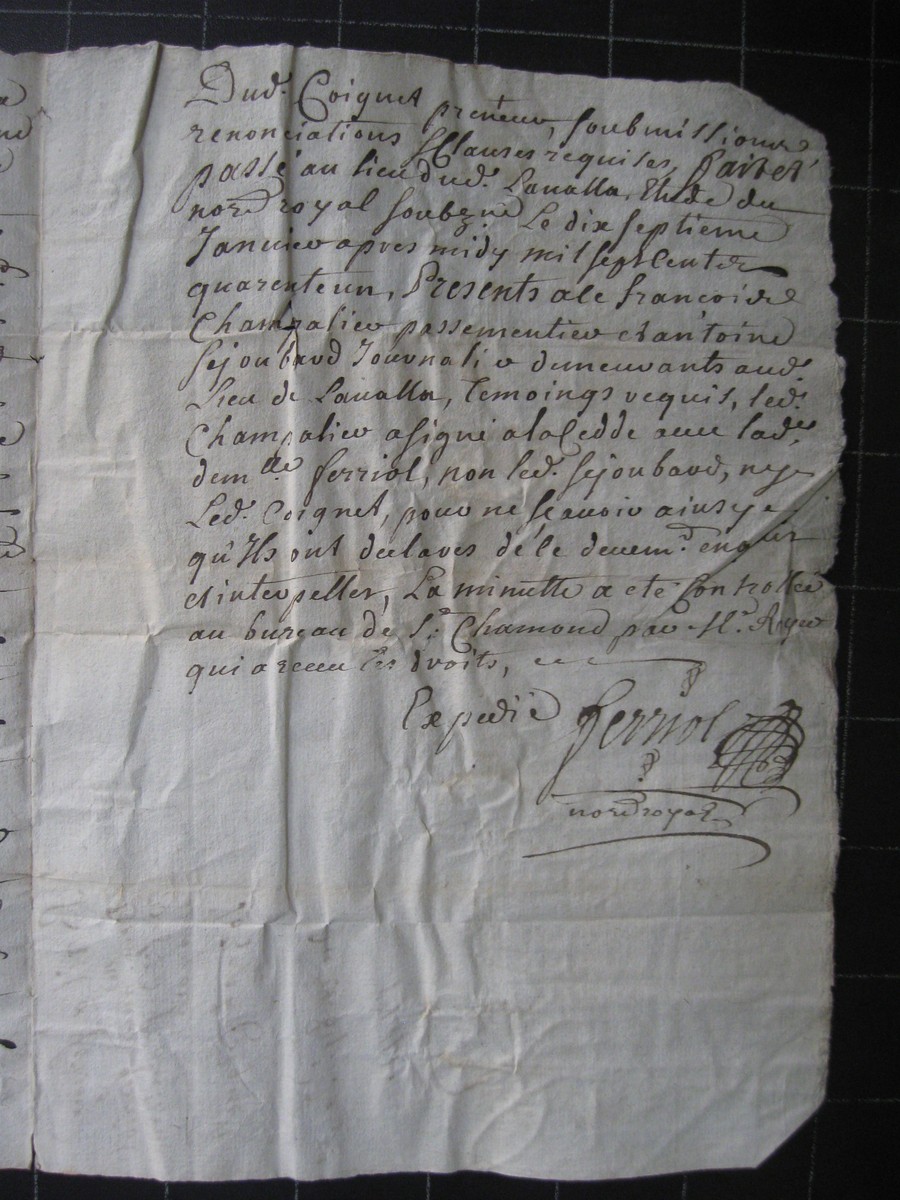 Dud. Coignet preneur, soubmissions
renonciations & Clauses requises, fait et
passé au lieu dud. Lavalla, Etude du
nore. royal soubzné Le dix septieme
Janvier apres midy mil sept cent
quarente un, Presents a ce francois
Champalier passementier et antoine
Sejoubard Journalier demeurants aud.
Lieu de Lavalla, temoings requis, led.
Champalier a signé a la Cedde avec lad.
demlle ferriol, non led. Sejoubard, ny
Led. Coignet, pour ne scavoir ainsy
qu'Ils ont declarés de ce deuem. enquis
et interpellés, La minutte a eté Controllée
au bureau de St. Chamond par Mr. Royer
qui a receu les droits,
Expedié ferriol
nore. royal